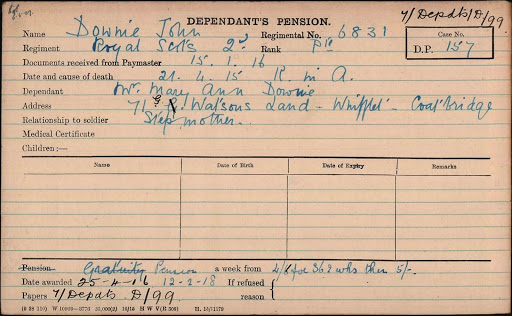 DEPENDANT'S PENSION.
7/Depdts/D/99.
Name Downie John Regimental No. 6831
Regiment Royal Scots 2d Rank Pte
Case No.
D.P. 157
Documents received from Paymaster 15. 1. 16
Date and cause of death 21. 4. 15 K. in A.
Dependant Mrs. Mary Ann Downie
Address 71 Watsons Land - Whifflet - Coatbridge
Relationship to soldier Step mother.
Medical Certificate
Children :—
Name Date of Birth Date of Expiry Remarks
Pension Gratuity Pension a week from 4/6 for 362 wks then 5/-
Date awarded 25-4-16 12-2-18 If refused
Papers 7/Depdts D/99. reason
H W V(R 306)